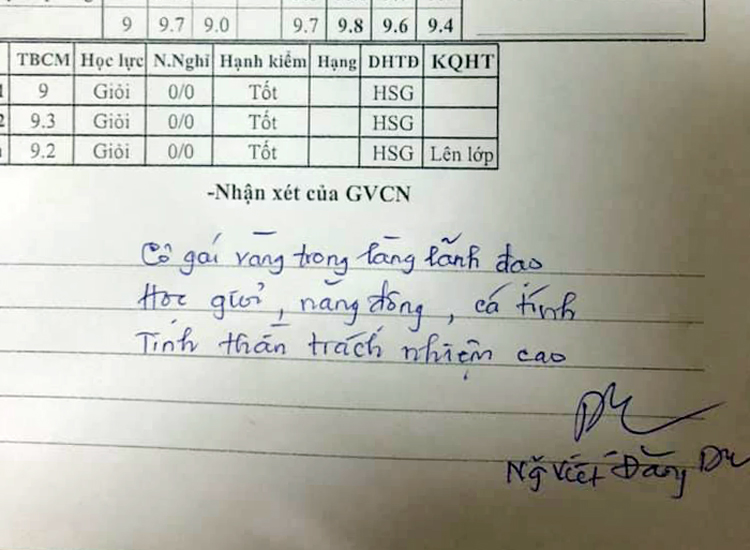 9 9.7 9.0 9.7 9.8 9.6 9.4
TBCM Học lực N.Nghỉ Hạnh kiểm Hạng DHTĐ KQHT
9 Giỏi 0/0 Tốt HSG
9.3 Giỏi 0/0 Tốt HSG
9.2 Giỏi 0/0 Tốt HSG Lên lớp
-Nhận xét của GVCN
Cô gái vàng trong làng lãnh đạo
Học giỏi, năng động, cá tính
Tinh thần trách nhiệm cao
Ng Viết Đăng